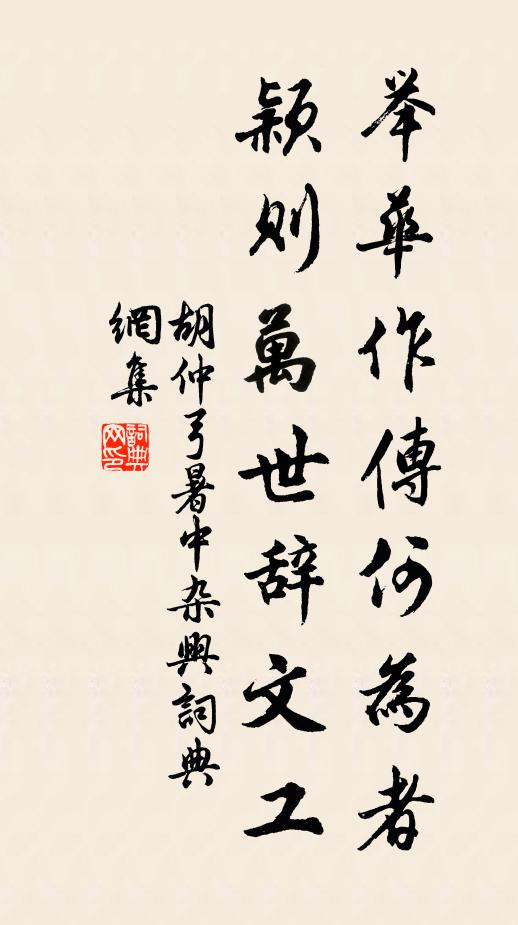 举華作傳何為者
颖则萬世辞文工
胡仲弓暑中杂興詞典
網集
詞典
网印